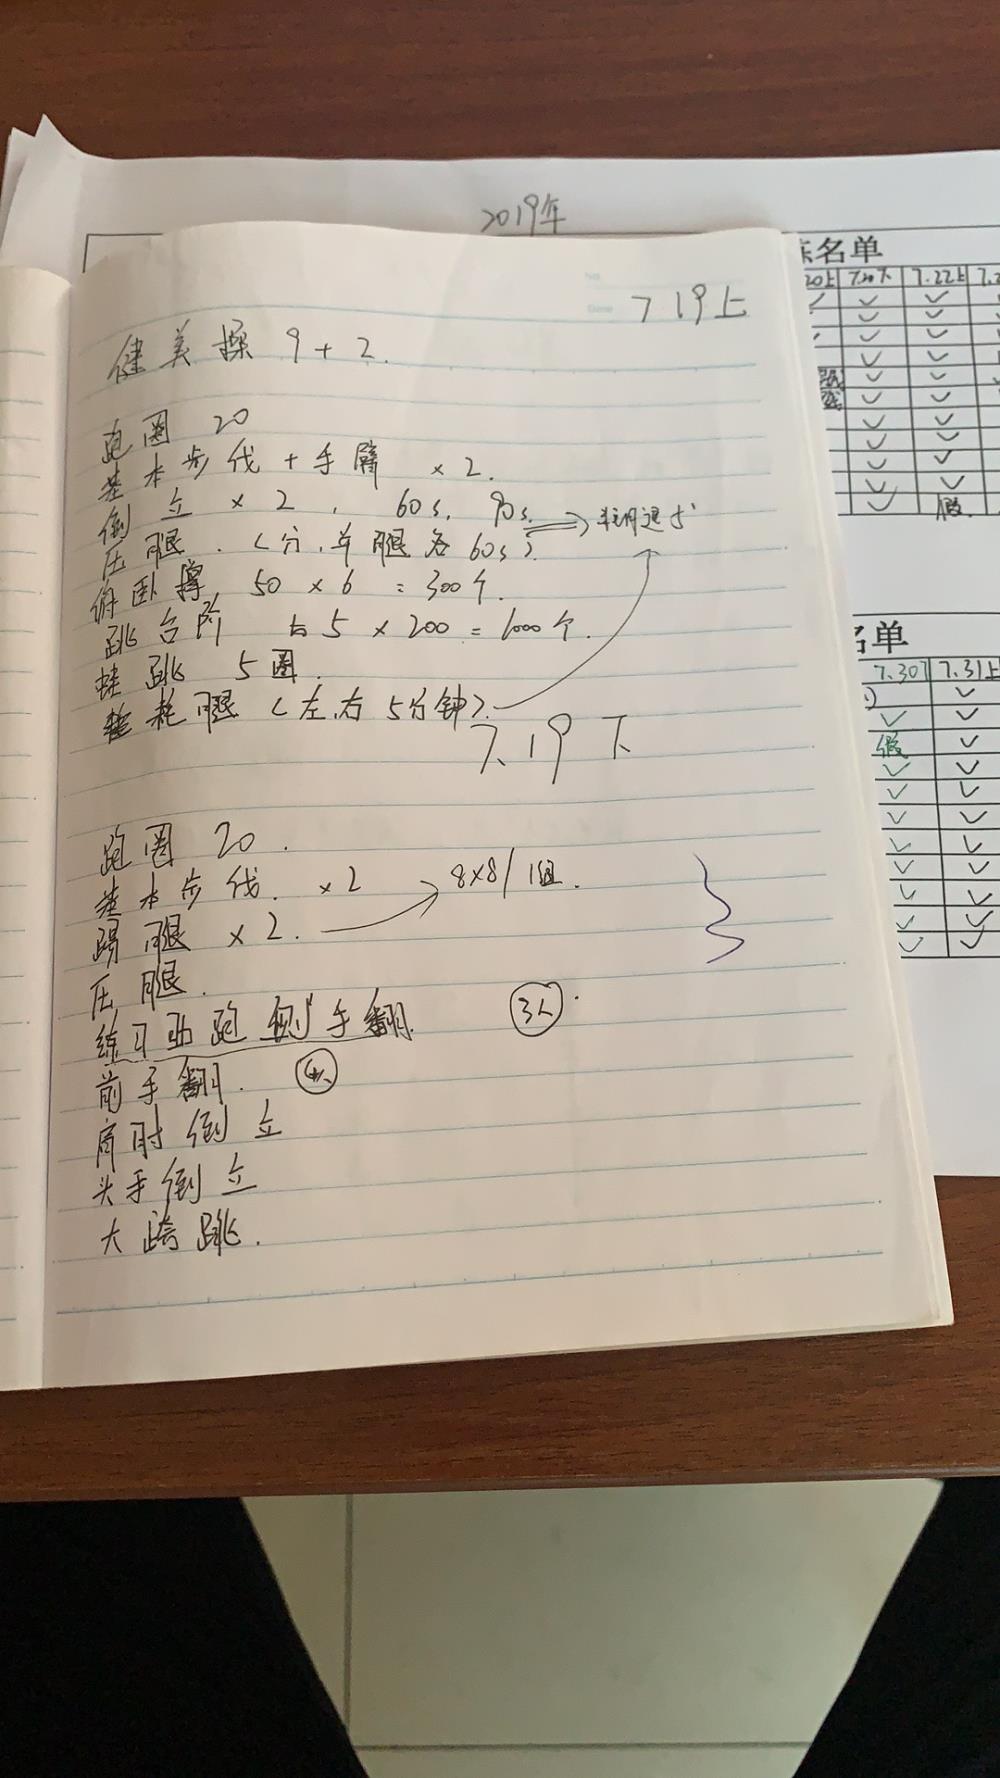 2019年
练名单
20上 7.20下 7.22上
假
名单
7.30下 7.31上
假
No.
Date
7.19上
健美操 9+2.
跑圈 20
基本步伐+手臂 ×2.
倒立 ×2, 60s, 90s.
压腿.(分,单腿各60s)
俯卧撑 50×6 = 300个.
跳台阶 右5×200=1000个.
蛙跳 5圈.
耗腿(左,右5分钟).
7.19下
跑圈 20.
基本步伐. ×2
踢腿 ×2. 8×8/1组.
压腿.
练习助跑侧手翻. 3人.
前手翻.
肩肘倒立
头手倒立
大跨跳.